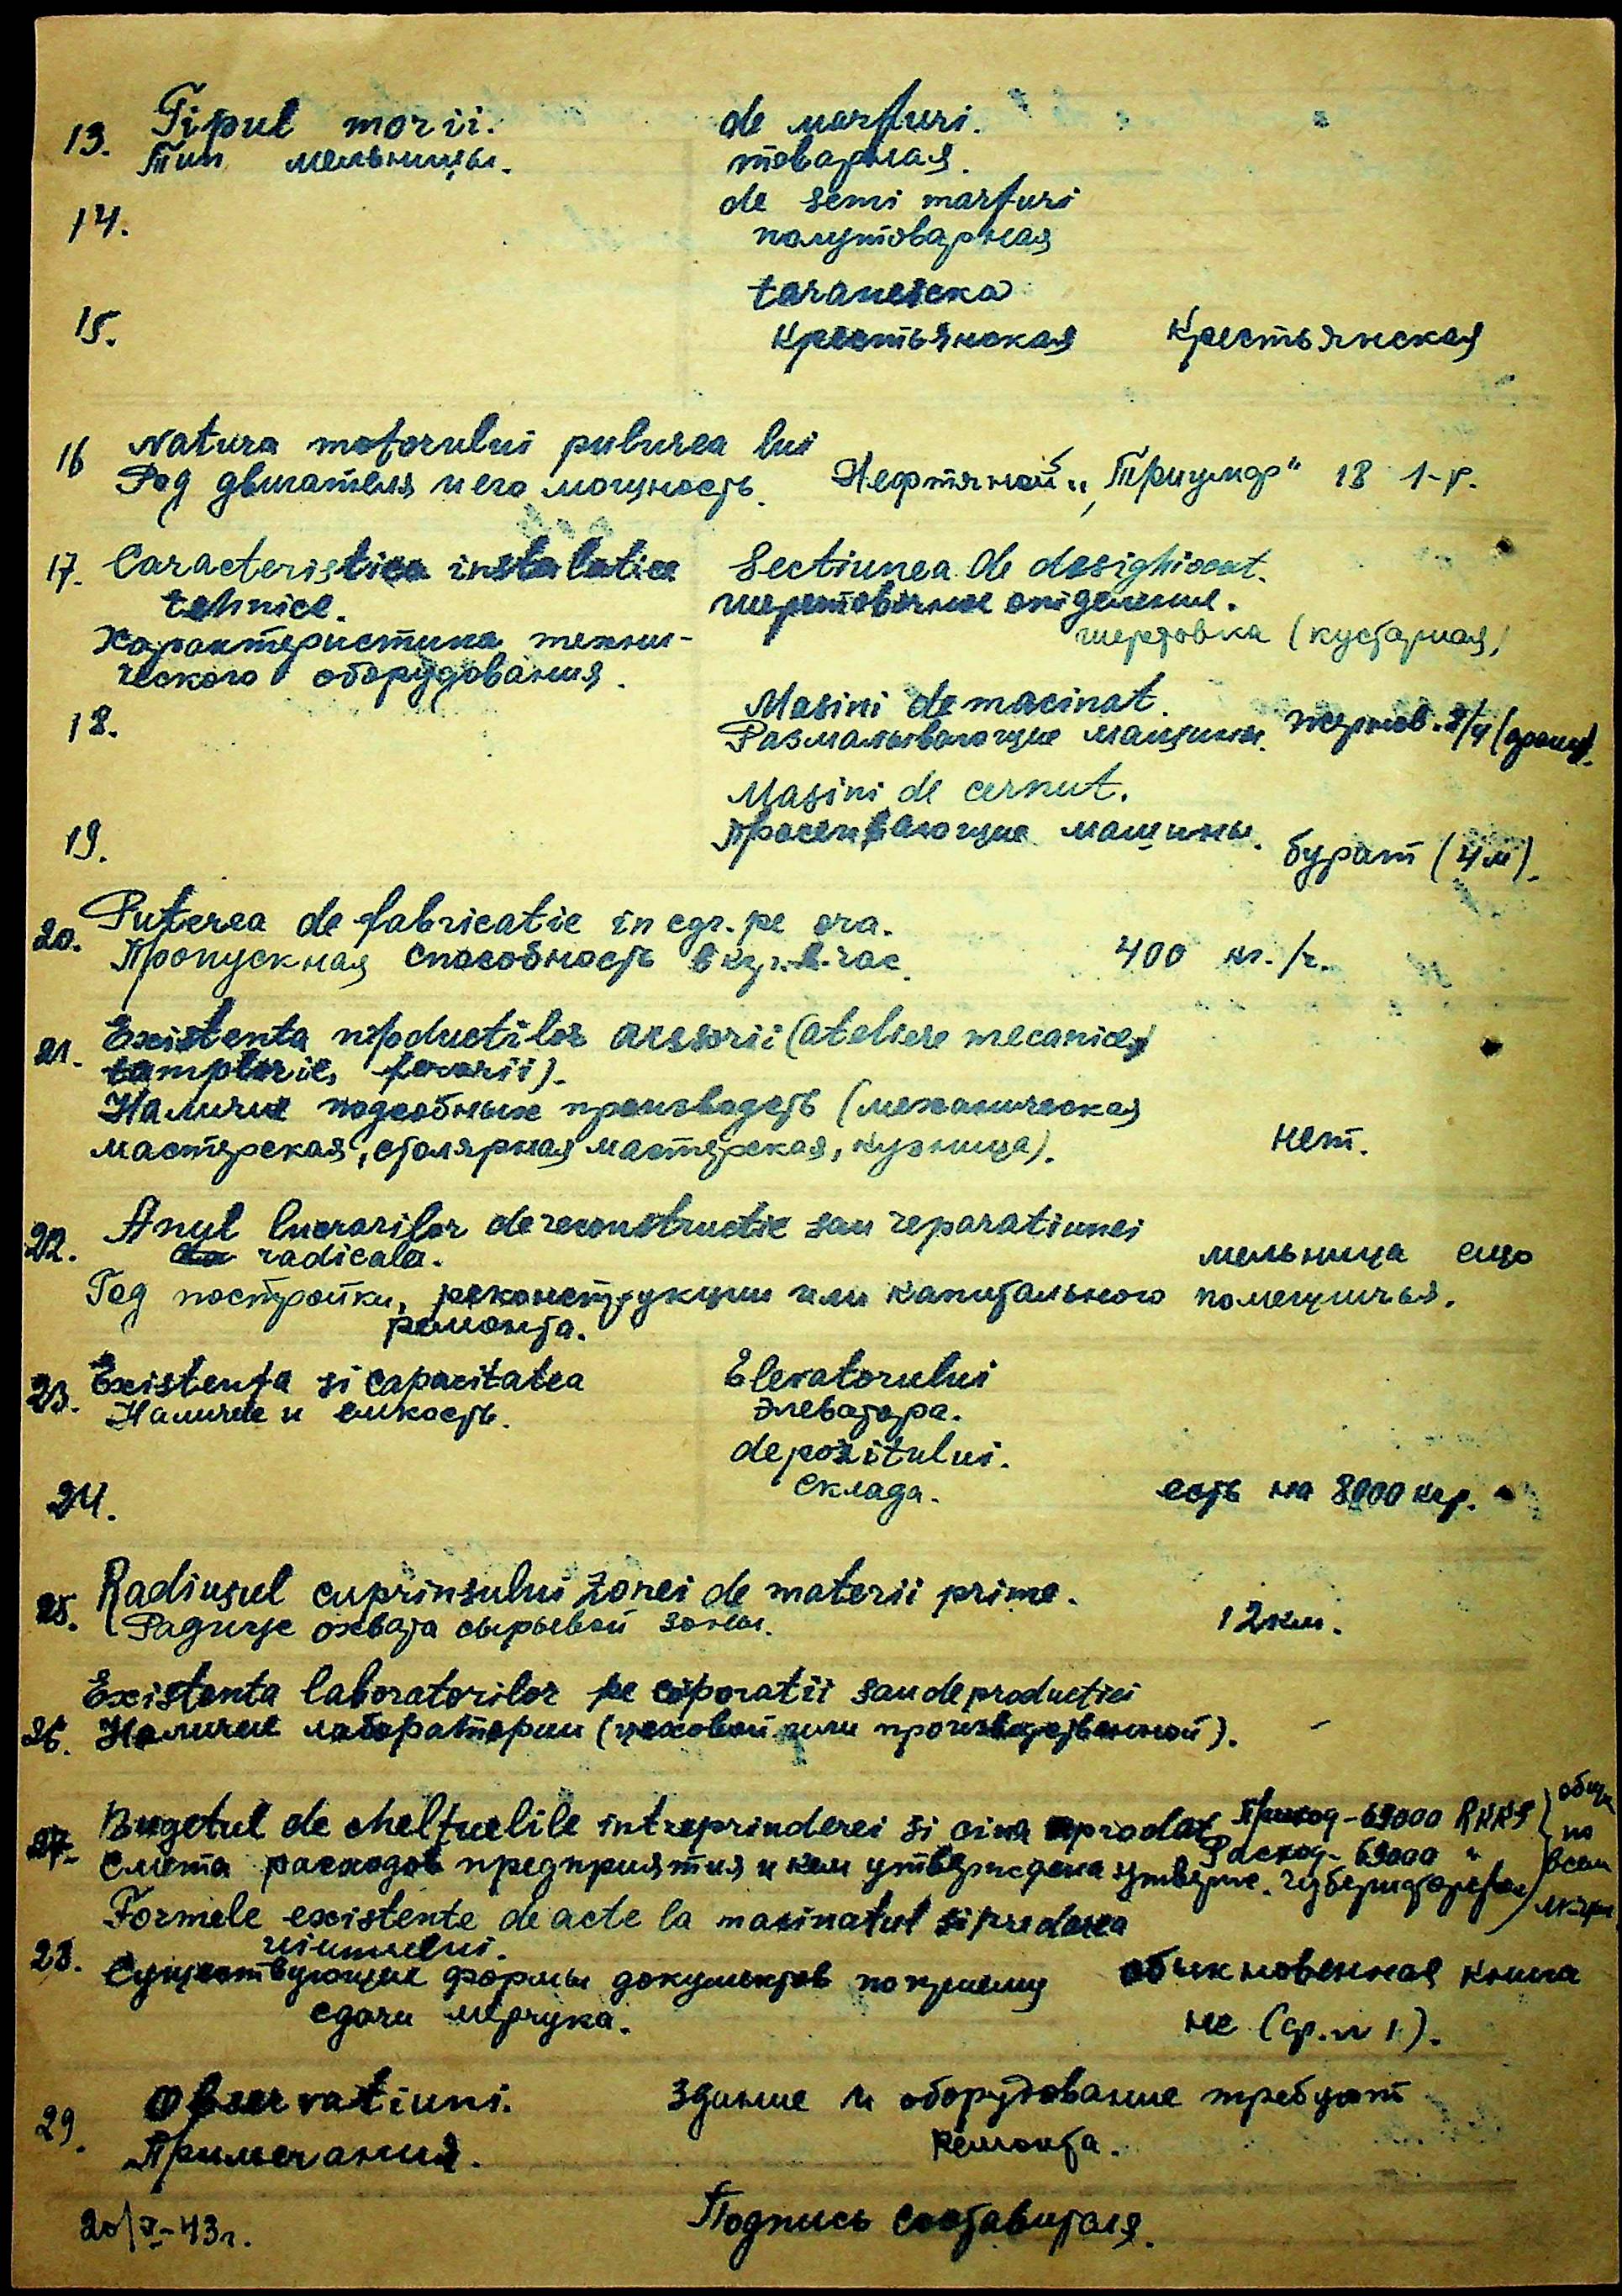 13. Tipul morii. de marfuri.
Тип мельницы. товарная.
14. de semi marfuri
полутоварная
taraneseca
15. Крестьянская Крестьянская
16 Natura motorului puturea lui
Род двигателя и его мощность. Нефтяной „Триумф" 18
17. Caracteristica instalatiei Sectiunea de
tehnice. шеретовочное отделение.
Характеристика техни- шеретовка (кустарная)
ческого оборудования.
18. Masini de macinat.
Размалывающие машины. жернов.
Masini de cernut.
19. Просеивающие машины. бурат (4 м).
20. Puterea de fabricatie in cgr. pe ora.
Пропускная способность в кгр. в час. 400 кг./ч.
21. Existenta acesorii (ateliere mecanice,
tamplarie, ferarii).
Наличие подсобных производств (механическая
мастерская, столярная мастерская, кузница). нет.
22. Anul lucrarilor de reconstructie sau reparatiunei
radicala. мельница ещо
Год постройки, реконструкции или капитального помещичья.
ремонта.
23. Existenta si capacitatea Elevatorului
Наличие и емкость. Элеватора.
depozitului.
24. Склада. есть на 8000 кгр.
25. Radiusul cuprinsului zonei de materii prime.
Радиус охвата сырьевой зоны. 12 км.
Existenta laboratorilor pe sau de productiei
26. Наличие лаборатории (цеховой или производственной). –
27. Bugetul de cheltuelile intreprinderei si cina aprodat Приход - 69000 RKKS общ.
Расход - 69000 " по
Смета расходов предприятия и кем утверждена утверж. всем
Formele existente de acte la macinatul si predarea
28. uiumului.
Существующие формы документов по приему обыкновенная книга
сдачи мерчука. не
29. Observatiuni. Здание и оборудование требуют
Примечания. Ремонта.
20/V-43г. Подпись Составителя.